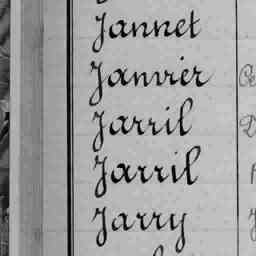 Jannet
Janvier
Jarril
Jarril
Jarry